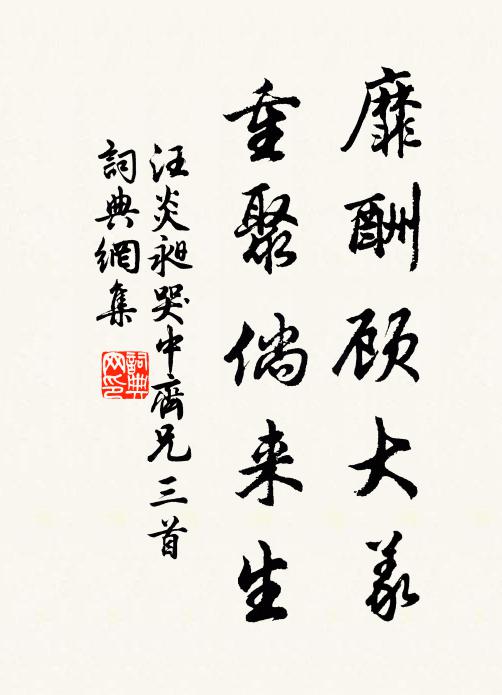 靡酬顾大义
重聚倘来生
汪炎昶哭中齊兄三首
詞典網集
詞典网印